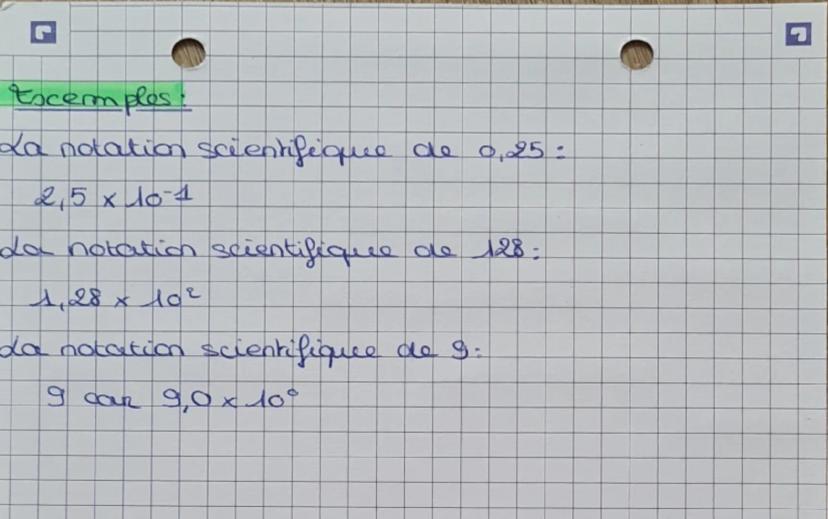 Exemples :
La notation scientifique de 0,25 :
2,5 x 10⁻¹
La notation scientifique de 128 :
1,28 x 10²
La notation scientifique de 9 :
9 car 9,0 x 10⁰